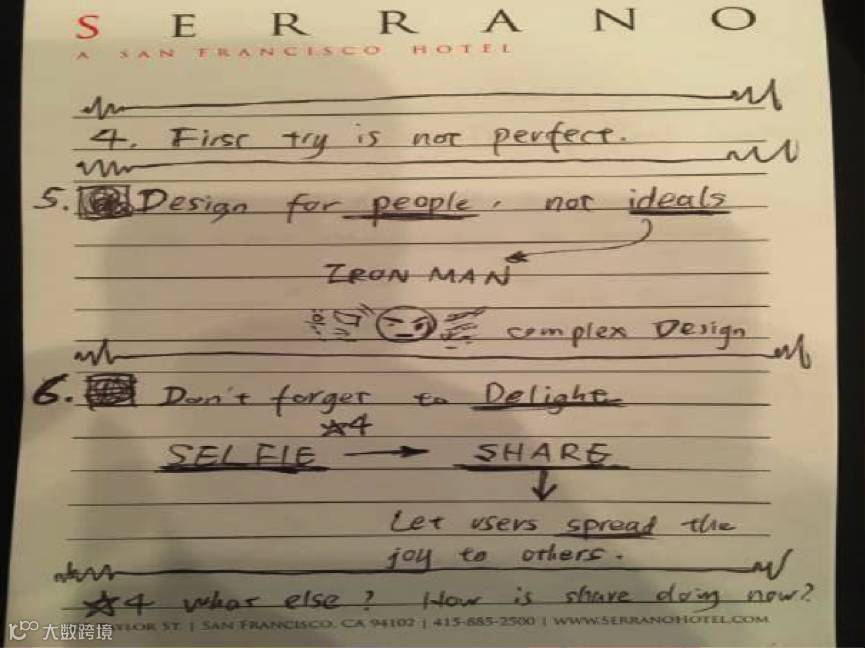 SERRANO
A SAN FRANCISCO HOTEL
4. First try is not perfect.
5. Design for people, not ideals
IRON MAN
complex Design
6. Don't forget to Delight
☆4
SELFIE → SHARE
↓
Let users spread the
joy to others.
☆4 what else? How is share doing now?
TAYLOR ST | SAN FRANCISCO, CA 94102 | 415-885-2500 | WWW.SERRANOHOTEL.COM
大数跨境